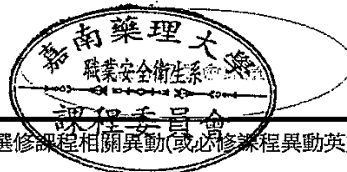 嘉南藥理大學
職業安全衛生系
課程委員會
選修課程相關異動(或必修課程異動英